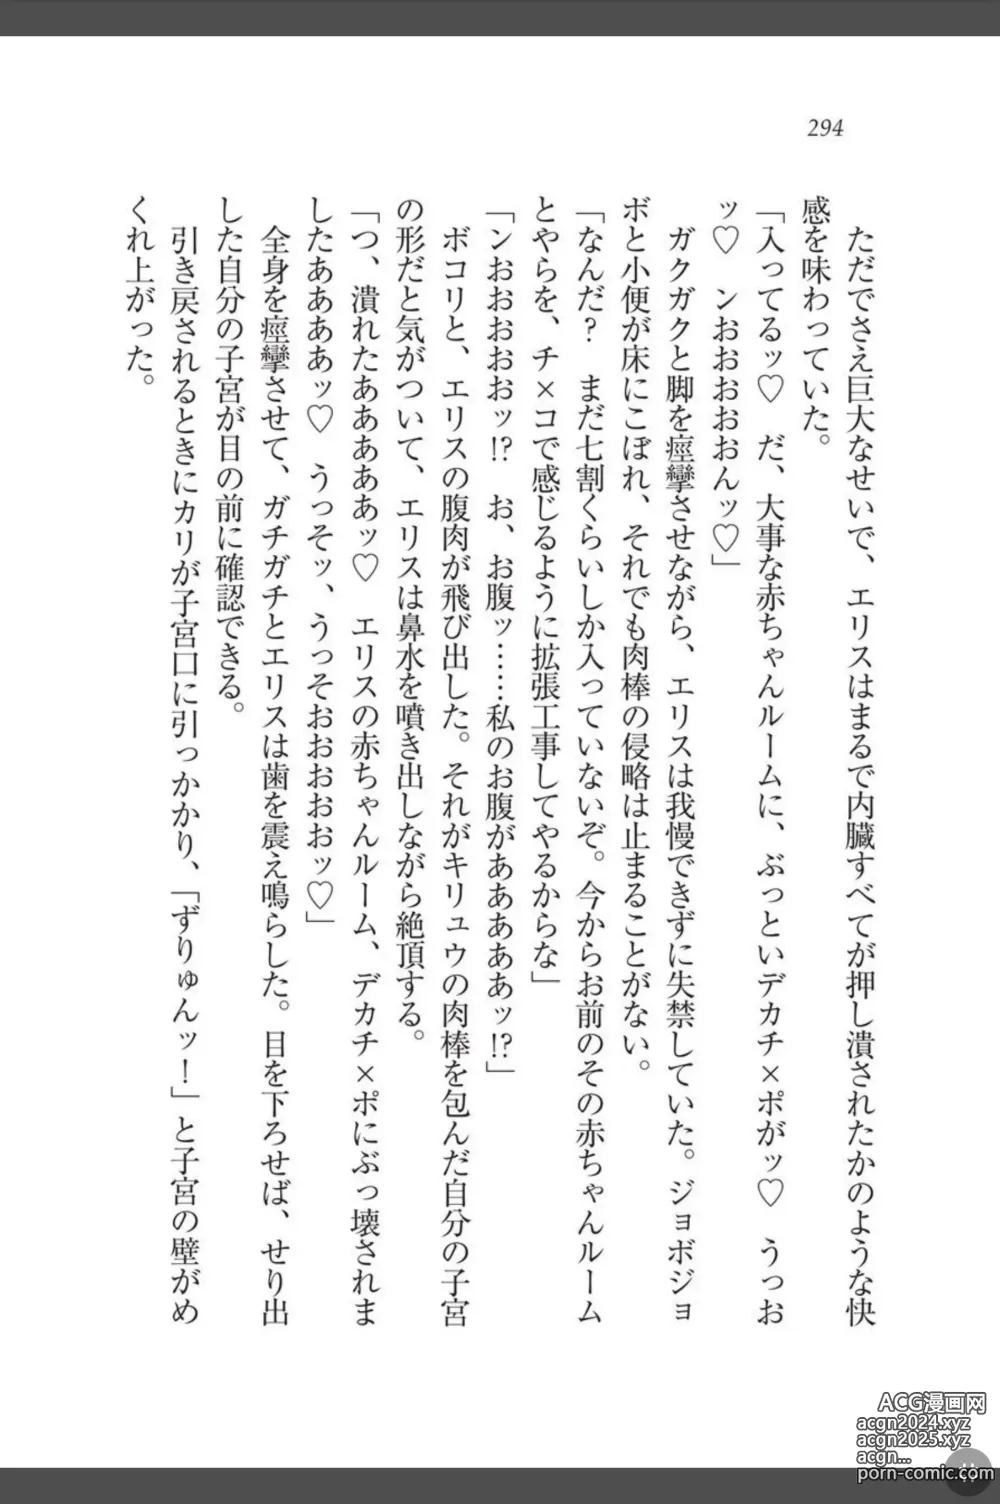 294
ただでさえ巨大なせいで、エリスはまるで内臓すべてが押し潰されたかのような快
感を味わっていた。
「入ってるッ♡　だ、大事な赤ちゃんルームに、ぶっといデカチ×ポがッ♡　うっお
ッ♡　ンおおおおおんッ♡」
ガクガクと脚を痙攣させながら、エリスは我慢できずに失禁していた。ジョボジョ
ボと小便が床にこぼれ、それでも肉棒の侵略は止まることがない。
「なんだ？　まだ七割くらいしか入っていないぞ。今からお前のその赤ちゃんルーム
とやらを、チ×コで感じるように拡張工事してやるからな」
「ンおおおおおッ!?　お、お腹ッ……私のお腹があああああッ!?」
ボコリと、エリスの腹肉が飛び出した。それがキリュウの肉棒を包んだ自分の子宮
の形だと気がついて、エリスは鼻水を噴き出しながら絶頂する。
「つ、潰れたああああああッ♡　エリスの赤ちゃんルーム、デカチ×ポにぶっ壊されま
したああああッ♡　うっそッ、うっそおおおおおッ♡」
全身を痙攣させて、ガチガチとエリスは歯を震え鳴らした。目を下ろせば、せり出
した自分の子宮が目の前に確認できる。
引き戻されるときにカリが子宮口に引っかかり、「ずりゅんッ！」と子宮の壁がめ
くれ上がった。
ACG漫画网
acgn2024.xyz
acgn2025.xyz
acgn...
porn-comic.com